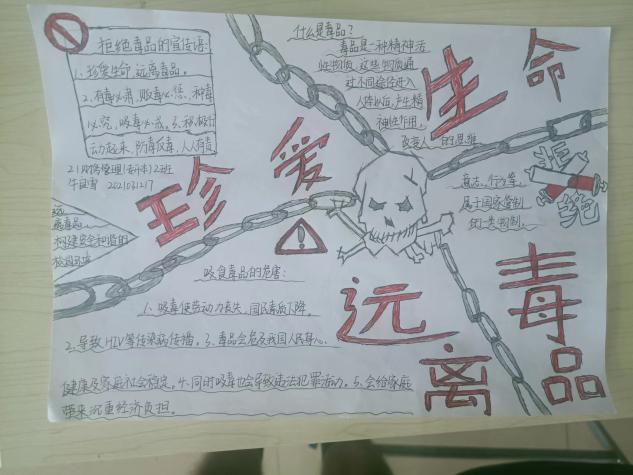 拒绝毒品的宣传语:
1、珍爱生命,远离毒品。
2、有毒必肃,贩毒必惩,种毒
必究,吸毒必戒。3、积极行
动起来,防毒反毒,人人有责
2班
202103117
什么是毒品?
毒品是一种精神活
性物质,这些物质通
过不同途径进入
人体以后,产生精
神性作用,
改变人的思维
意志、行为等,
属于国家管制
的一类物质。
珍爱生命
拒绝
远离毒品
远
离毒品
构建安全和谐的
校园环境
吸食毒品的危害:
1、吸毒使劳动力丧失,国民素质下降。
2、导致HIV等传染病传播。3、毒品会危及我国人民身心
健康及家庭社会稳定。4、同时吸毒也会导致违法犯罪活动。5、会给家庭
带来沉重经济负担。